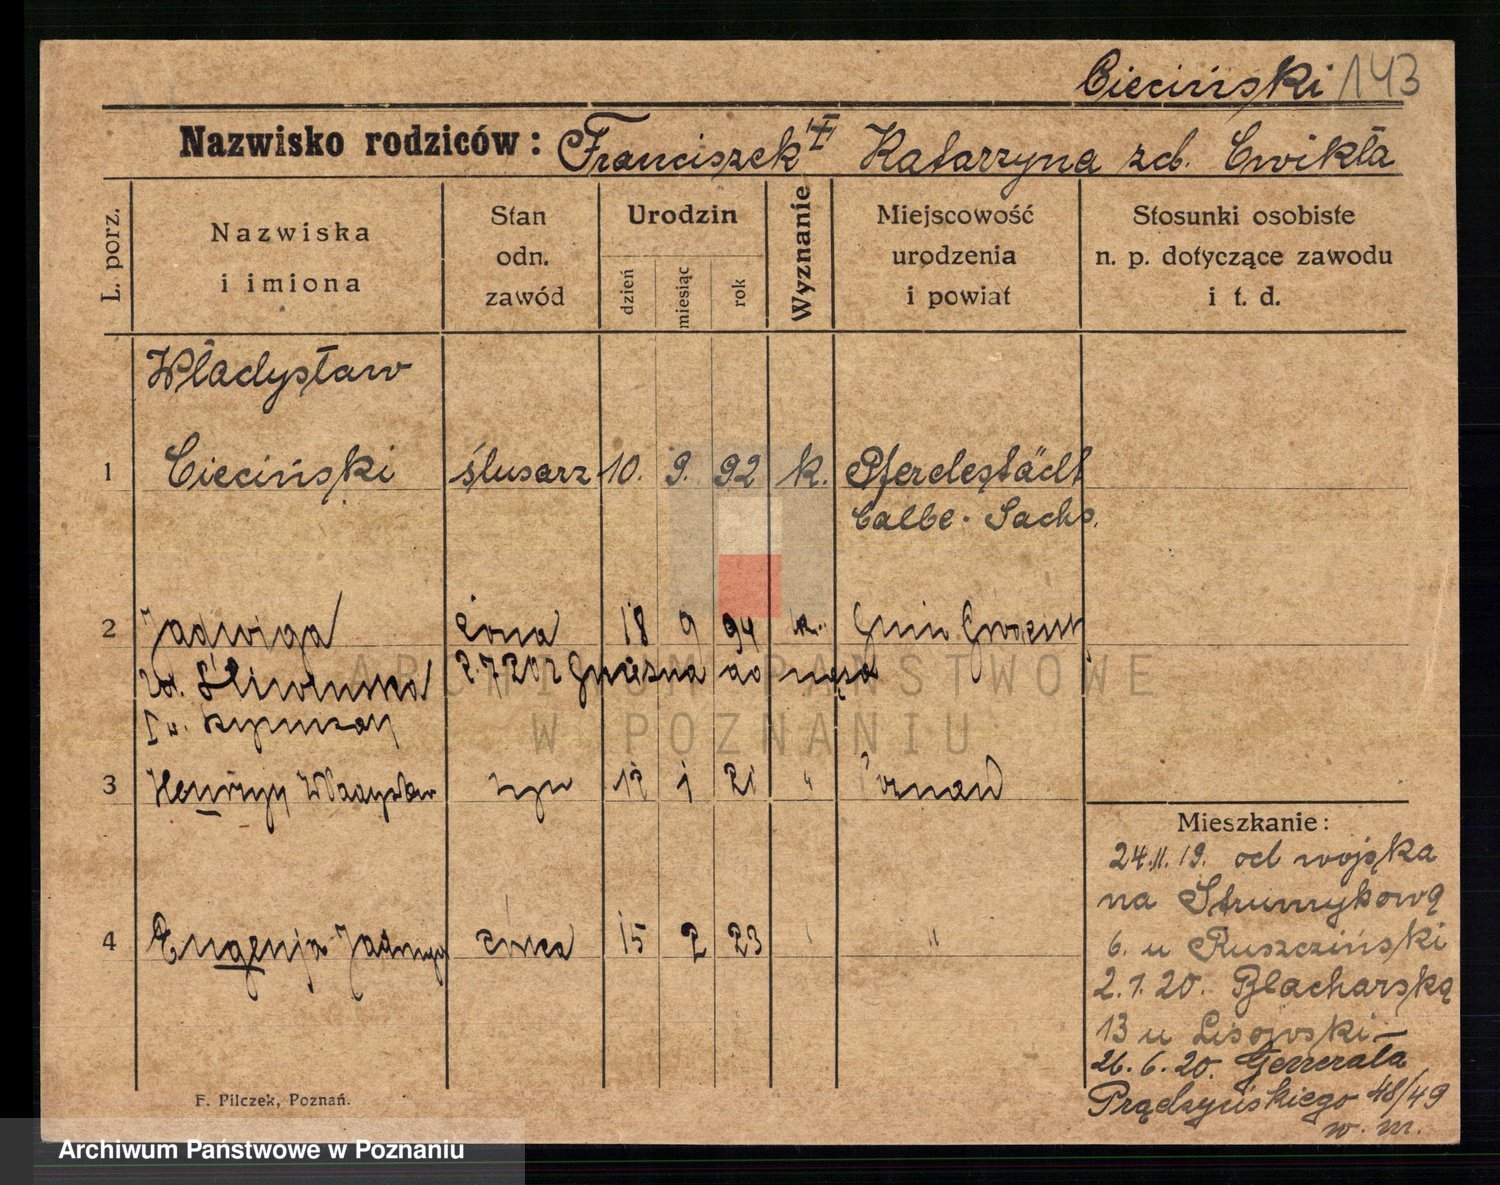 Cieciński 143
Nazwisko rodziców: Franciszek Katarzyna Cwikła
L. porz.
Nazwiska i imiona
Stan odn. zawód
Urodzin
dzień
miesiąc
rok
Wyznanie
Miejscowość urodzenia i powiat
Stosunki osobiste n. p. dotyczące zawodu i t. d.
Władysław
1 Cieciński ślusarz 10. 9. 92 k. Pferdestädt
Calbe. Sachs.
2 Jadwiga żona 18 9 94 k.
Gniezna do męża
3 Henryk Władysław syn 12 1 21 " Poznań
4 Eugenja Jadwiga córka 15 2 23 "
Mieszkanie:
24.11.19. od wojska
na Strumykową
6. u Ruszcziński
2.1.20. Blacharską
13 u Lisowski
26.6.20. Generała
Prądzyńskiego 48/49
w. m.
F. Pilczek, Poznań.
ARCHIWUM PAŃSTWOWE
W POZNANIU
Archiwum Państwowe w Poznaniu